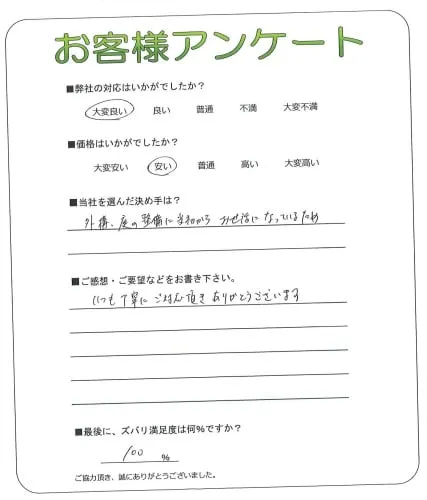 お客様アンケート
■弊社の対応はいかがでしたか？
大変良い 良い 普通 不満 大変不満
■価格はいかがでしたか？
大変安い 安い 普通 高い 大変高い
■当社を選んだ決め手は？
外構、庭の整備に当初から お世話になっているため
■ご感想・ご要望などをお書き下さい。
いつも丁寧にご対応頂き ありがとうございます
■最後に、ズバリ満足度は何％ですか？
100 ％
ご協力頂き、誠にありがとうございました。